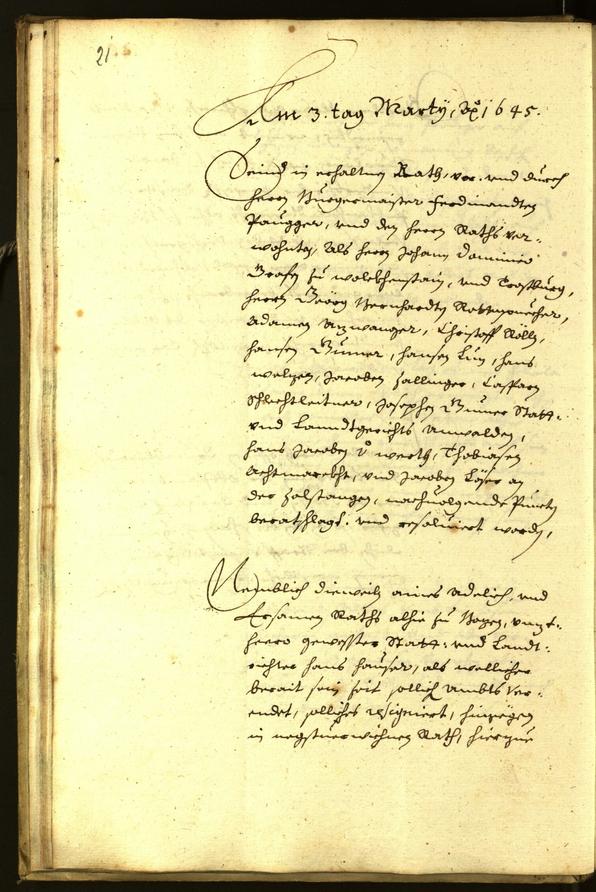 21.
Am 3. tag Marty, A͞o 1645.
Seind in erhaltnen Rath, vor. vnd durch
herrn Burgermaister Ferdinandten
Paugger, vnd den herrn Raths ver-
wohnten, Als herrn Johann Dominico
Grafen zu wolckhenstain, vnd Trostburg,
herrn Georg Bernhardten Rottenpuecher,
Adamen Anzwanger, Christoff Röllen,
hansen Gumer, hansen Lun, hans
welzen, Jacoben Zallinger, Casparn
Schlechtleitner, Josephen Gumer Statt-
vnd Lanndtgerichts Anwalden,
hans Jacoben v werth, Thobiasen
Achtmarckht, vnd Jacoben Löser an
der Zolstangen, nachuolgende Puncten
beratschlagt. vnd resoluiert worden,
Nemblich dieweilen aines Adelich, vnd
Ersamen Raths alhie zu Bozen,
herr gewester Statt- vnd Landt-
richter hans hauser, als wellicher
berait sein seit sollich Ambts ver-
endet, solliches resigniert, hingegen
in negstuerwichnen Rath, hierzue